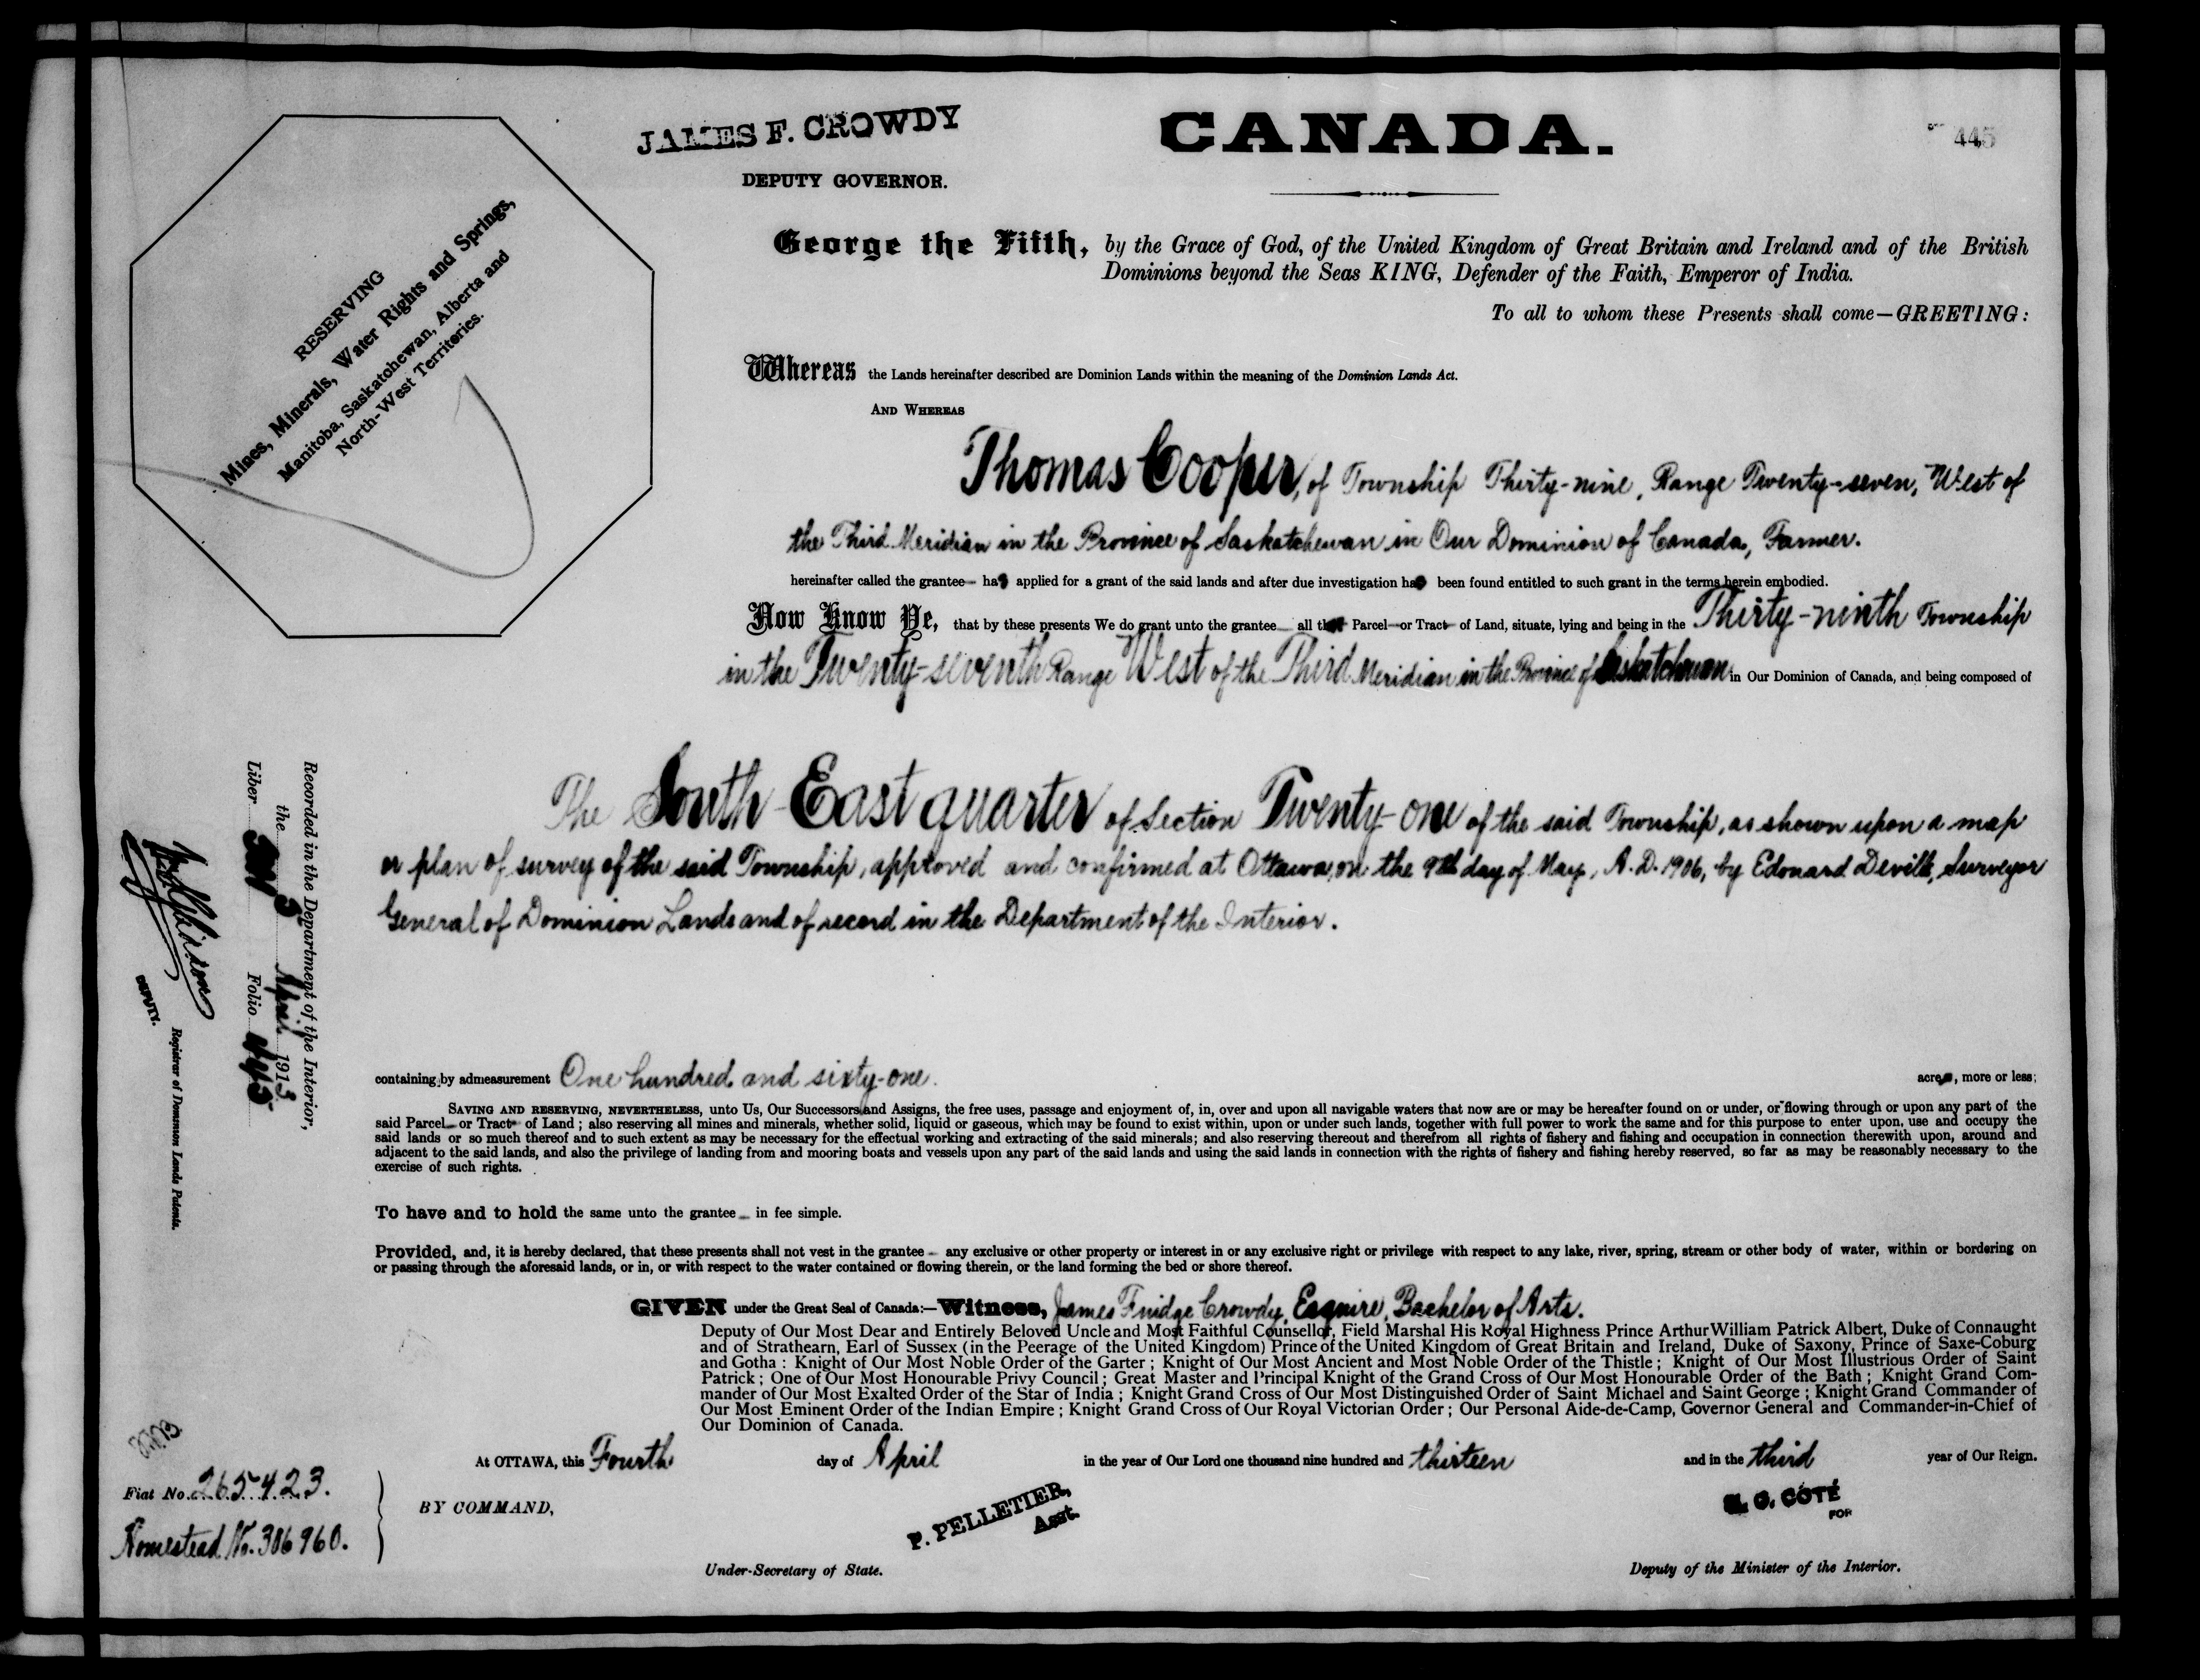 JAMES F. CROWDY
DEPUTY GOVERNOR.
CANADA.
445
RESERVING
Mines, Minerals, Water Rights and Springs,
Manitoba, Saskatchewan, Alberta and
North-West Territories.
George the Fifth, by the Grace of God, of the United Kingdom of Great Britain and Ireland and of the British
Dominions beyond the Seas KING, Defender of the Faith, Emperor of India.
To all to whom these Presents shall come—GREETING:
Whereas the Lands hereinafter described are Dominion Lands within the meaning of the Dominion Lands Act.
AND WHEREAS
Thomas Cooper, of Township Thirty-nine, Range Twenty-seven, West of
the Third Meridian in the Province of Saskatchewan in Our Dominion of Canada, Farmer.
hereinafter called the grantee has applied for a grant of the said lands and after due investigation has been found entitled to such grant in the terms herein embodied.
Now Know Ye, that by these presents We do grant unto the grantee all that Parcel or Tract of Land, situate, lying and being in the Thirty-ninth Township
in the Twenty-seventh Range West of the Third Meridian in the Province of Saskatchewan in Our Dominion of Canada, and being composed of
The South-East quarter of Section Twenty-one of the said Township, as shown upon a map
or plan of survey of the said Township, approved and confirmed at Ottawa, on the 9th day of May, A.D. 1906, by Edouard Deville, Surveyor
General of Dominion Lands and of record in the Department of the Interior.
Recorded in the Department of the Interior,
the April 1913
Liber Folio 445
Registrar of Dominion Lands Patents.
DEPUTY.
containing by admeasurement One hundred and sixty-one. acres, more or less;
SAVING AND RESERVING, NEVERTHELESS, unto Us, Our Successors and Assigns, the free uses, passage and enjoyment of, in, over and upon all navigable waters that now are or may be hereafter found on or under, or flowing through or upon any part of the
said Parcel or Tract of Land ; also reserving all mines and minerals, whether solid, liquid or gaseous, which may be found to exist within, upon or under such lands, together with full power to work the same and for this purpose to enter upon, use and occupy the
said lands or so much thereof and to such extent as may be necessary for the effectual working and extracting of the said minerals; and also reserving thereout and therefrom all rights of fishery and fishing and occupation in connection therewith upon, around and
adjacent to the said lands, and also the privilege of landing from and mooring boats and vessels upon any part of the said lands and using the said lands in connection with the rights of fishery and fishing hereby reserved, so far as may be reasonably necessary to the
exercise of such rights.
To have and to hold the same unto the grantee in fee simple.
Provided, and, it is hereby declared, that these presents shall not vest in the grantee any exclusive or other property or interest in or any exclusive right or privilege with respect to any lake, river, spring, stream or other body of water, within or bordering on
or passing through the aforesaid lands, or in, or with respect to the water contained or flowing therein, or the land forming the bed or shore thereof.
GIVEN under the Great Seal of Canada:—Witness, James Fuidge Crowdy, Esquire, Bachelor of Arts.
Deputy of Our Most Dear and Entirely Beloved Uncle and Most Faithful Counsellor, Field Marshal His Royal Highness Prince Arthur William Patrick Albert, Duke of Connaught
and of Strathearn, Earl of Sussex (in the Peerage of the United Kingdom) Prince of the United Kingdom of Great Britain and Ireland, Duke of Saxony, Prince of Saxe-Coburg
and Gotha : Knight of Our Most Noble Order of the Garter ; Knight of Our Most Ancient and Most Noble Order of the Thistle ; Knight of Our Most Illustrious Order of Saint
Patrick ; One of Our Most Honourable Privy Council ; Great Master and Principal Knight of the Grand Cross of Our Most Honourable Order of the Bath ; Knight Grand Com-
mander of Our Most Exalted Order of the Star of India ; Knight Grand Cross of Our Most Distinguished Order of Saint Michael and Saint George ; Knight Grand Commander of
Our Most Eminent Order of the Indian Empire ; Knight Grand Cross of Our Royal Victorian Order ; Our Personal Aide-de-Camp, Governor General and Commander-in-Chief of
Our Dominion of Canada.
At OTTAWA, this Fourth day of April in the year of Our Lord one thousand nine hundred and thirteen and in the third year of Our Reign.
Fiat No. 265423.
Homestead No. 306960.
BY COMMAND,
P. PELLETIER,
Asst.
Under-Secretary of State.
N. O. COTÉ
FOR
Deputy of the Minister of the Interior.